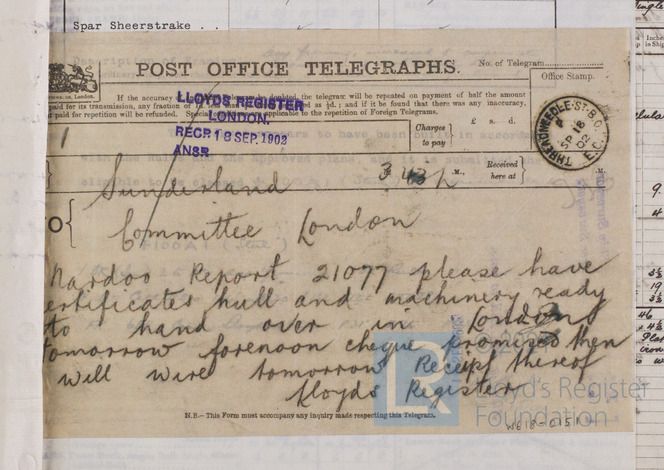 Spar Sheerstrake . .
POST OFFICE TELEGRAPHS.
No. of Telegram
If the accuracy be doubted, the telegram will be repeated on payment of half the amount
paid for its transmission, any fraction of 1d. less than ½d. being reckoned as ½d.; and if it be found that there was any inaccuracy,
paid for repetition will be refunded. Special applicable to the repetition of Foreign Telegrams.
Office Stamp.
LLOYDS REGISTER
LONDON.
RECD 18 SEP. 1902
ANSR
Charges
to pay
£ s. d.
THREADNEEDLE·ST·B.O.
SP 18
02
E.C.
Sunderland
3 43 p M.,
Received
here at
M.
TO
Committee London
Nardoo Report 21077 please have
ertificates hull and machinery ready
to hand over in London
tomorrow forenoon cheque promised then
will wire tomorrow Receipt thereof
Lloyds Register
N.B.—This Form must accompany any inquiry made respecting this Telegram.
Lloyd's Register
Foundation
W618-0151